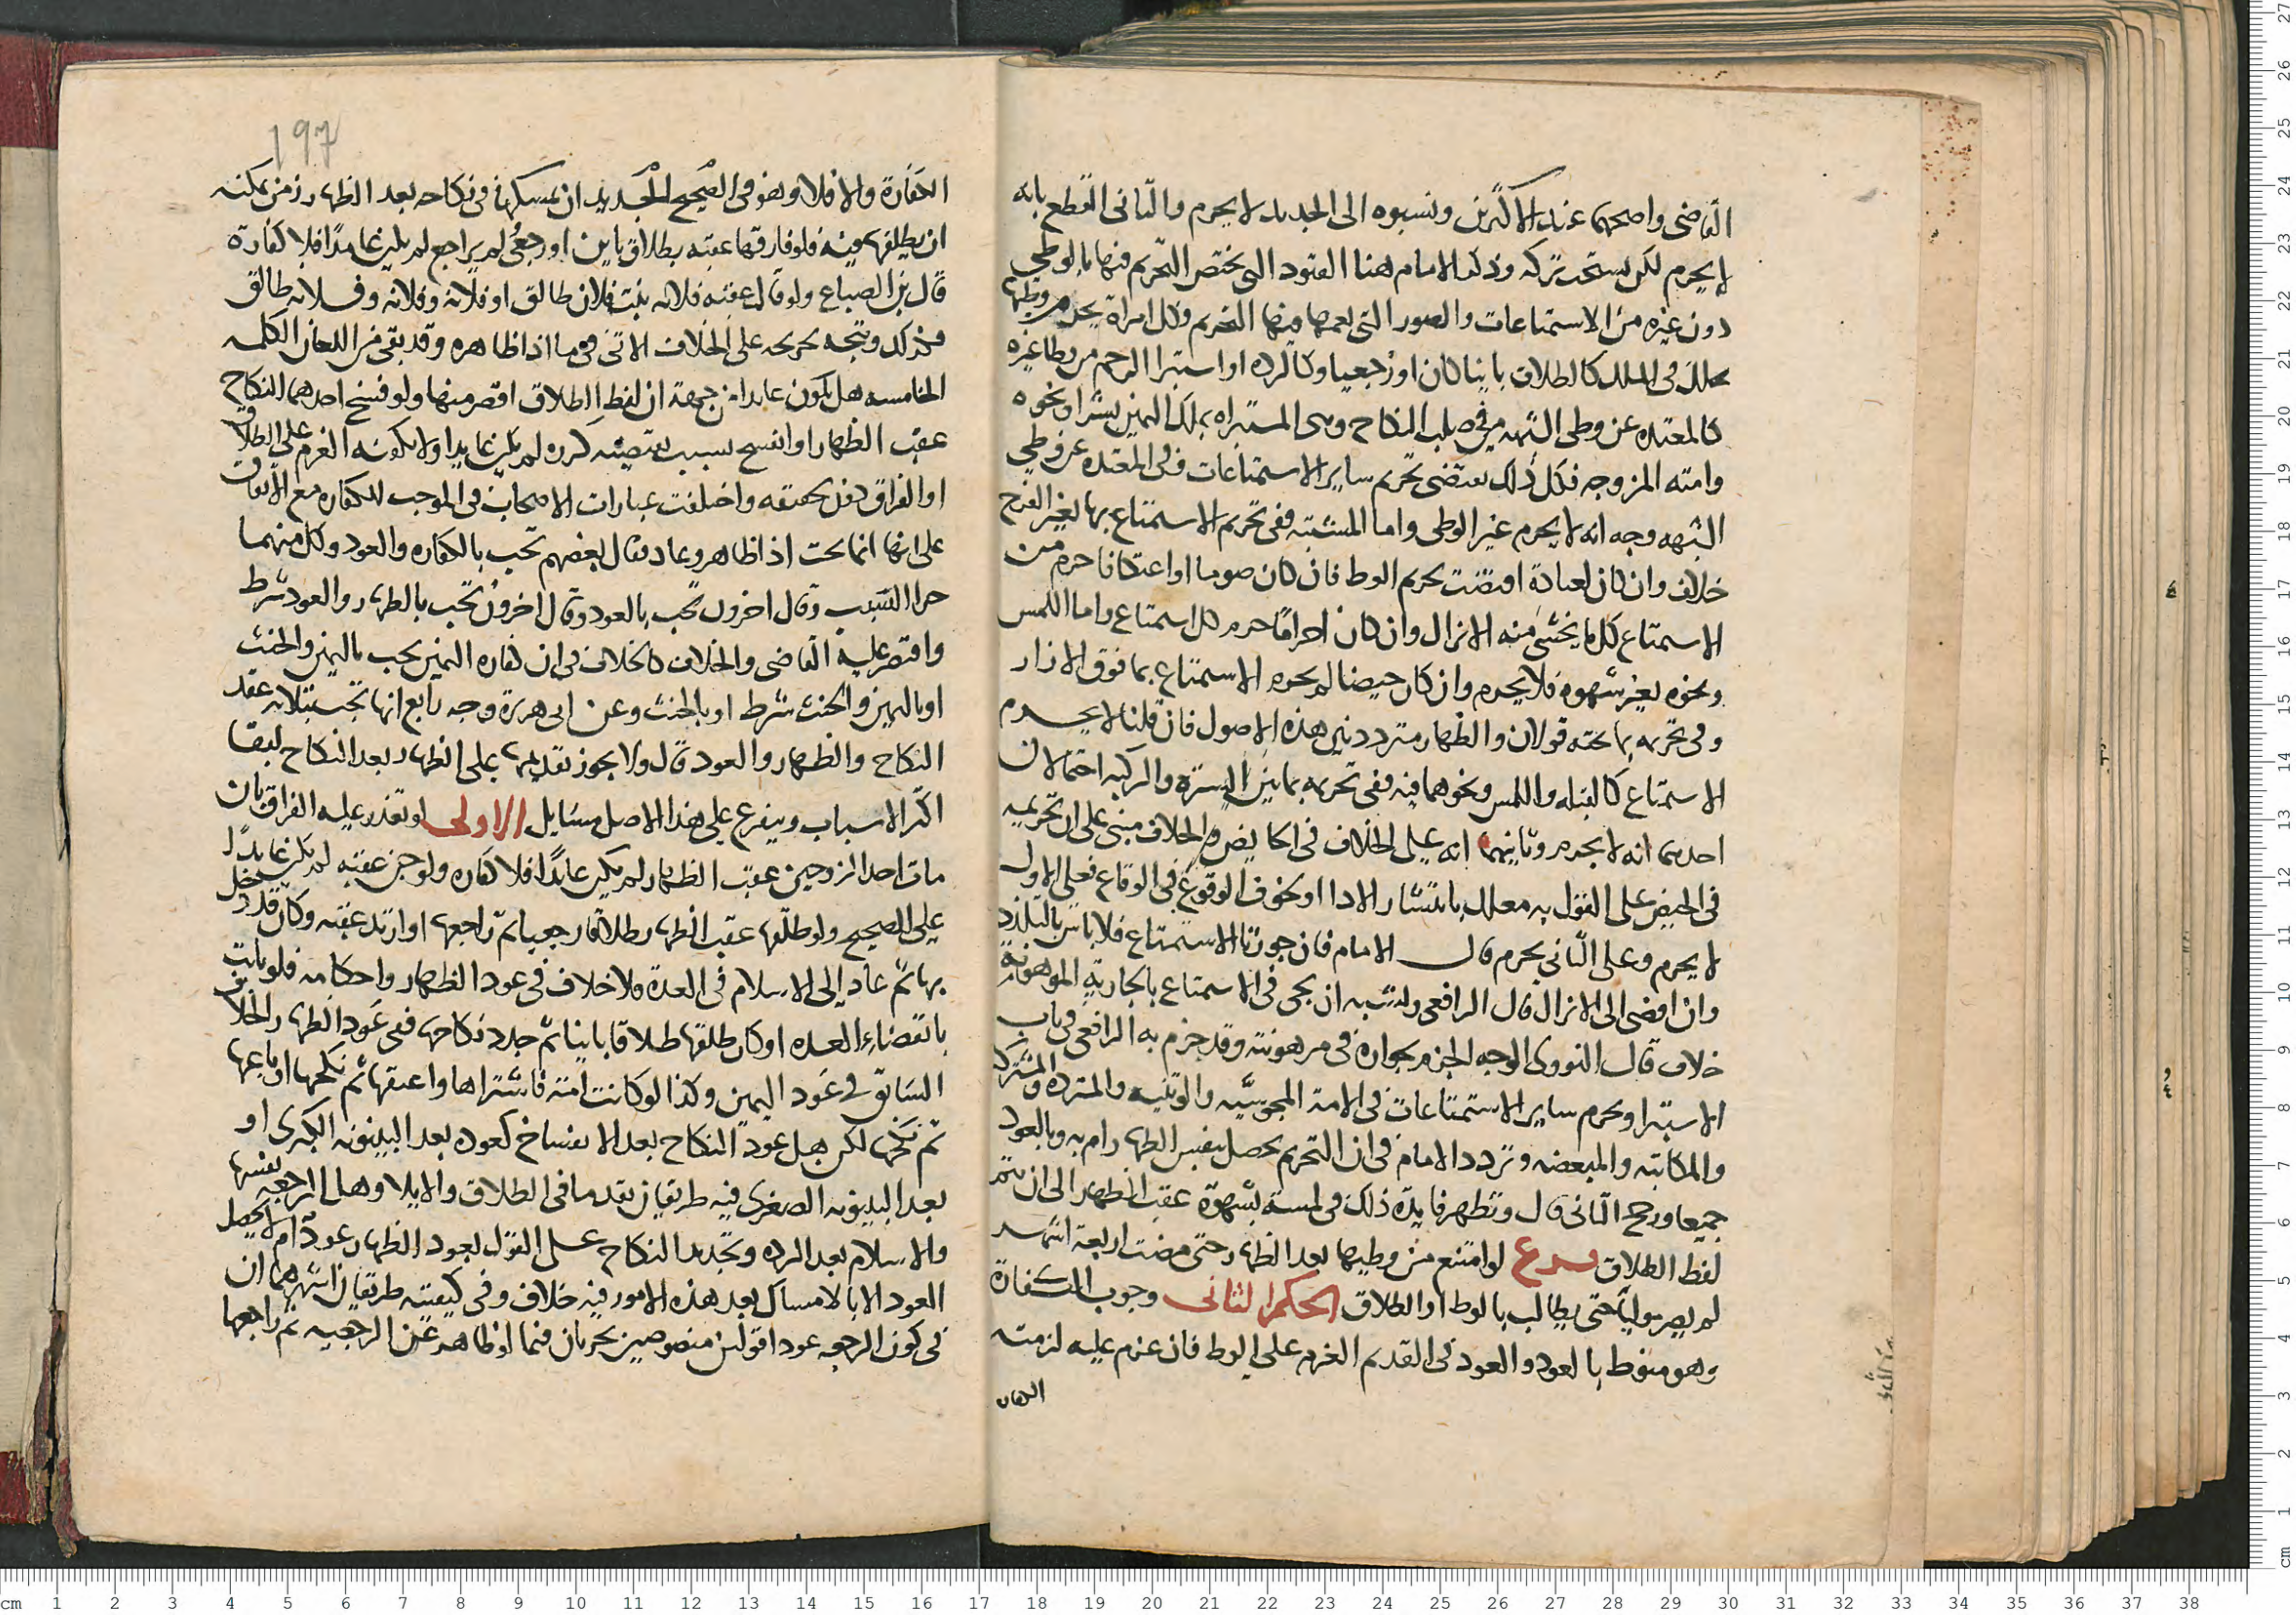 القاضى واصحهما عند الاكثرين ونسبوه الى الجديد لا يحرم والثانى القطع بانه
لا يحرم لكن يستحب تركه وذكر الامام هنا العقود التى يختص التحريم فيها بالوطى
دون غيره من الاستمتاعات والصور التى يعمها فيها التحريم وكل امراة يحرم وطيها
فى الملك كالطلاق باينا كان او رجعيا وكالرده او استبرا الرحم من وطا غيره
كالمعتده عن وطى الشبهه فى صلب النكاح وهى المستبراه بملك اليمين بشرا ونحوه
وامته المزوجه فكل ذلك يقتضى تحريم ساير الاستمتاعات وفى المعتده عن وطى
الشبهه وجه انه لا يحرم غير الوطى واما المستبراه ففى تحريم الاستمتاع بها بغير الفرج
خلاف وان كان لعبادة اقتضت تحريم الوط فان كان صوما او اعتكافا حرم من
الاستمتاع كل ما يخشى منه الانزال وان كان احراما حرم كل استمتاع واما اللمس
ونحوه بغير شهوه فلا يحرم وان كان حيضا لم يحرم الاستمتاع بما فوق الازار
وفى تحريمه بما تحته قولان والظهار متردد بين هذه الاصول فان قلنا لا يحرم
الاستمتاع كالقبله واللمس ونحوهما فيه ففى تحريمه بما بين السرة والركبه احتمالان
احدهما انه لا يحرم وثانيهما انه على الخلاف فى الحايض والخلاف مبنى على ان تحريمه
فى الحيض على القول به معلل بانتشار الاذا او بخوف الوقوع فى الوقاع فعلى الاول
لا يحرم وعلى الثانى يحرم قال الامام فان جوزنا الاستمتاع فلا باس بالتلذذ
وان افضى الى الانزال قال الرافعى ويشبه ان يجى فى الاستمتاع بالجارية المرهونة
خلاف قال النووى الوجه الجزم بجوازه فى مرهونته وقد جزم به الرافعى فى باب
الاستبرا ويحرم ساير الاستمتاعات فى الامة المجوسيه والوثنيه والمرتده والمشتركه
والمكاتبه والمبعضه وتردد الامام فى ان التحريم يحصل بنفس الظهار ام به وبالعود
جميعا ورجح الثانى قال وتظهر فايدة ذلك فى لمسه بشهوة عقب الظهار الى ان يتم
لفظ الطلاق فرع لو امتنع من وطيها بعد الظهار حتى مضت اربعة اشهر
لم يصر موليا حتى يطالب بالوط او الطلاق الحكم الثانى وجوب الكفارة
وهو منوط بالعود والعود فى القديم العزم على الوط فان عزم عليه لزمته
الكفارة
197
الكفارة والا فلا وهو فى الصحيح الجديد ان يمسكها فى نكاحه بعد الظهار زمن يمكنه
ان يطلقها فيه فلو فارقها عقبه بطلاق باين او رجعى لم يراجع لم يكن عايدا فلا كفارة
قال بن الصباغ ولو قال عقبه فلانه بنت فلان طالق او فلانة وفلانه وفلانه طالق
فكذلك ويتجه تخريجه على الخلاف الاتى فيما اذا ظاهره وقد بقى من اللعان الكلمه
الخامسه هل يكون عايدا من جهة ان لفظ الطلاق اقصر منها ولو فسخ احدهما النكاح
عقب الظهار او انفسخ بسبب يقتضيه كرده لم يكن عايدا ولا يكفيه العزم على الطلاق
او الفراق دون تحقيقه واختلفت عبارات الاصحاب فى الموجب للكفاره مع الاتفاق
على انها انما تجب اذا ظاهر وعاد فقال بعضهم تجب بالظهار والعود وكل منهما
جزا السبب وقال اخرون تجب بالعود وقال اخرون تجب بالظهار والعود شرط
واقتصر عليه القاضى والخلاف كالخلاف فى ان كفاره اليمين يجب باليمين والحنث
او باليمين والحنث شرط او بالحنث وعن ابى هريرة وجه رابع انها تجب بثلاثه عقد
النكاح والظهار والعود قال ولا يجوز تقديمها على الظهار بعد النكاح لبقا
اكثر الاسباب ويتفرع على هذا الاصل مسايل الاولى لو تعذر عليه الفراق بان
مات احد الزوجين عقب الظهار لم يكن عايدا فلا كفاره ولو جن عقبه لم يكن عايدا
على الصحيح ولو طلقها عقب الظهار طلاقا رجعيا ثم راجعها او ارتد عقبه وكان قد دخل
بها ثم عاد الى الاسلام فى العدة فلا خلاف فى عود الظهار واحكامه فلو بانت
بانقضاء العده او كان طلقها طلاقا باينا ثم جدد نكاحها ففى عود الظهار الخلاف
السابق فى عود اليمين وكذا لو كانت امة فاشتراها واعتقها ثم نكحها او باعها
ثم نكحها لكن هل عود النكاح بعد الانفساخ كعوده بعد البينونه الكبرى او
بعد البينونه الصغرى فيه طريقان تقدما فى الطلاق والايلا وهل الرجعه نفسها
والاسلام بعد الرده وتجديد النكاح على القول بعود الظهار عود ام لا يحصل
العود الا بالامساك بعد هذه الامور فيه خلاف وفى كيفيته طريقان اشهرهما ان
فى كون الرجعه عودا قولين منصوصين يجريان فيما اذا ظاهر عن الرجعيه ثم راجعها